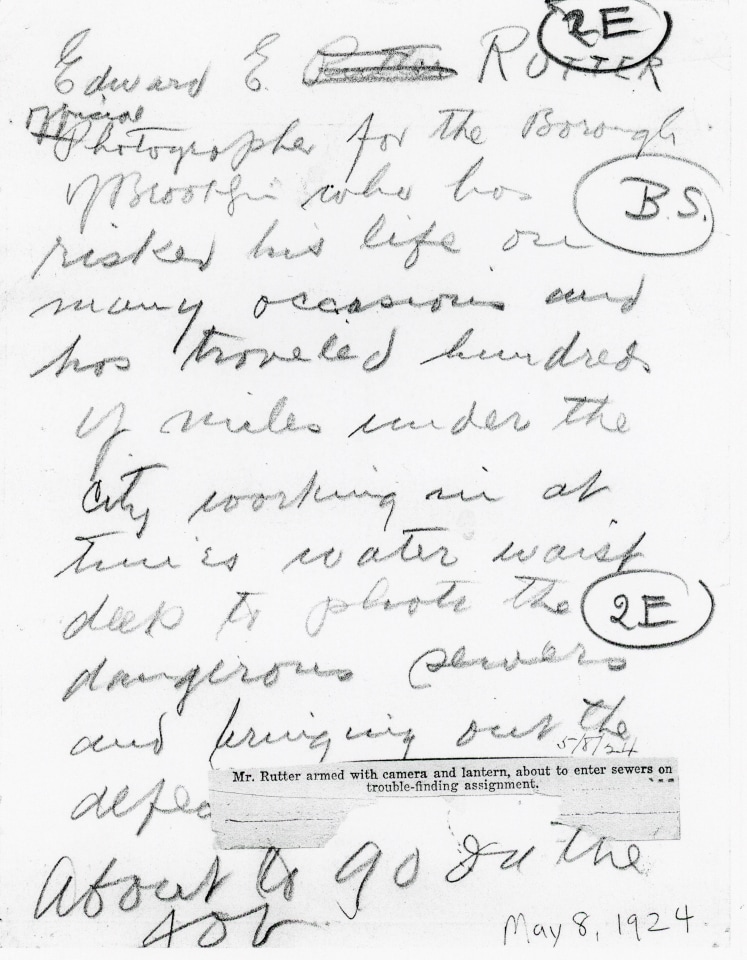 2E
Edward E. RUTTER
official
Photographer for the Borough
of Brooklyn who has
B.S.
risked his life on
many occasions and
has traveled hundreds
of miles under the
city working in at
times water waist
deep to photo the
2E
dangerous sewers
and bringing out the
5/8/24
Mr. Rutter armed with camera and lantern, about to enter sewers on
trouble-finding assignment.
defec
About to go on the
job
May 8, 1924